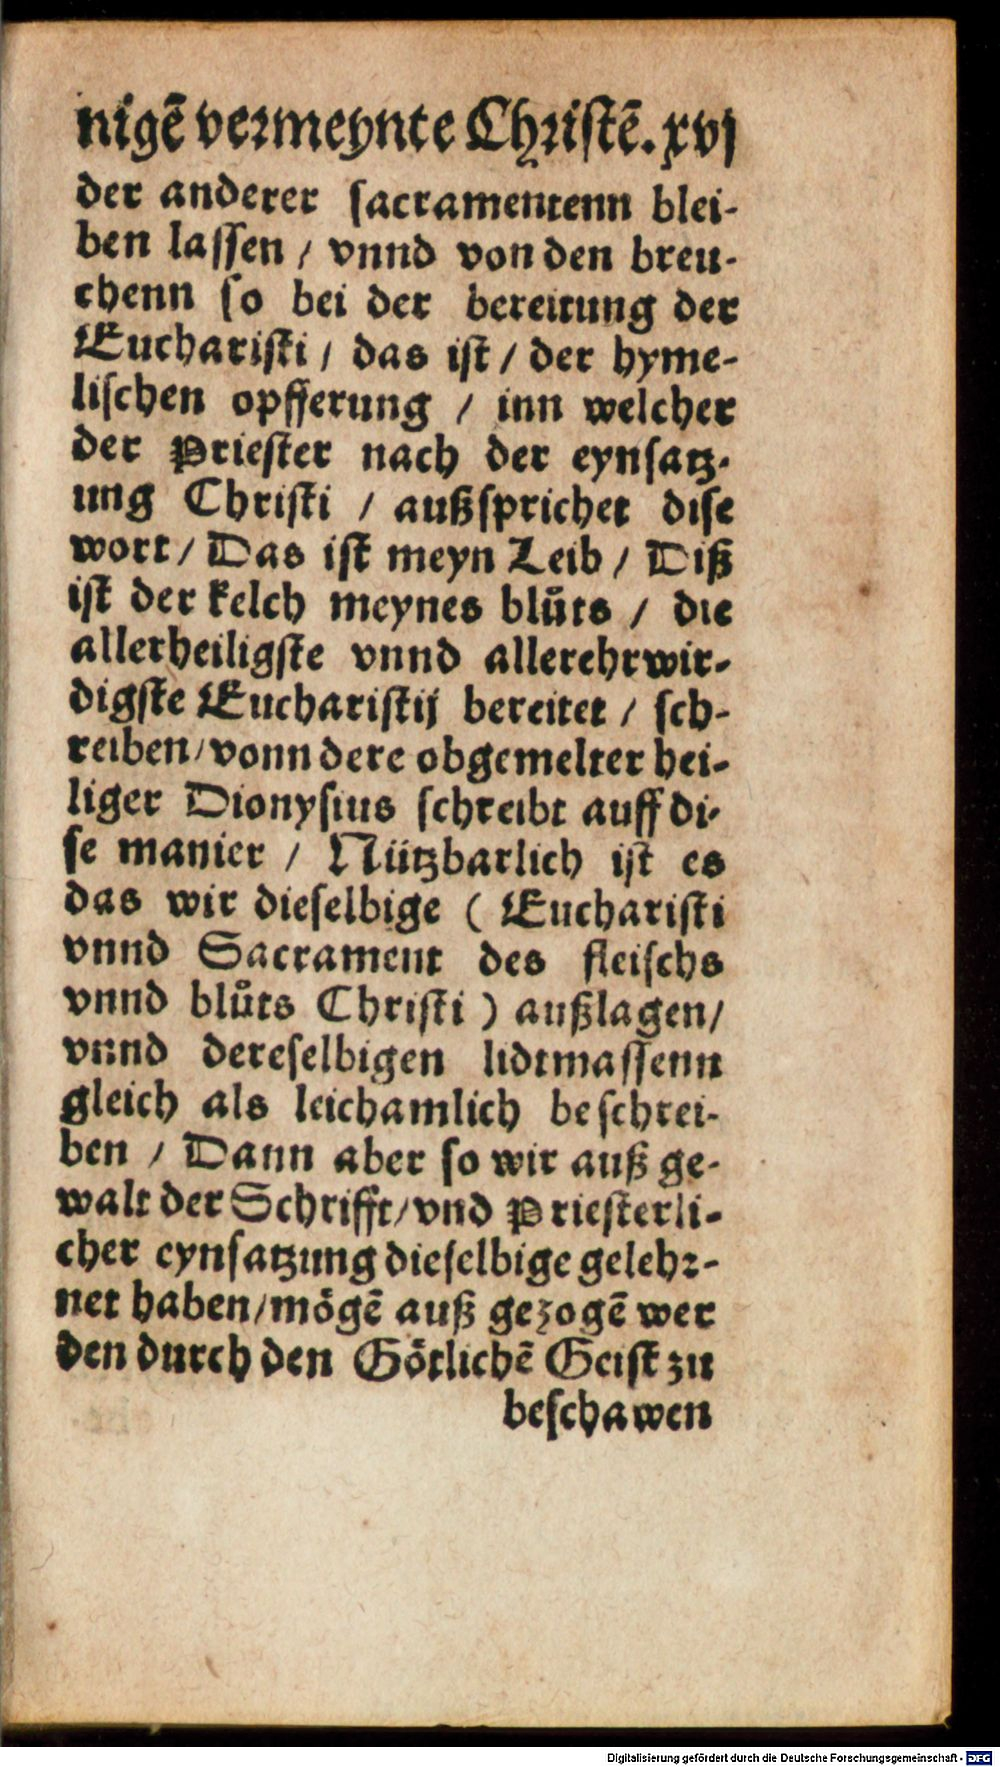 nigẽ vermeynte Christẽ. xvj
der anderer sacramentenn blei-
ben lassen / vnnd von den breu-
chenn so bei der bereitung der
Eucharisti / das ist / der hyme-
lischen opfferung / inn welcher
der Priester nach der eynsatz-
ung Christi / außsprichet dise
wort / Das ist meyn Leib / Diß
ist der kelch meynes blůts / die
allerheiligste vnnd allerehrwir-
digste Eucharistij bereitet / sch-
reiben / vonn dere obgemelter hei-
liger Dionysius schreibt auff di-
se manier / Nützbarlich ist es
das wir dieselbige ( Eucharisti
vnnd Sacrament des fleischs
vnnd blůts Christi ) außlagen /
vnnd dereselbigen lidtmassenn
gleich als leichamlich beschrei-
ben / Dann aber so wir auß ge-
walt der Schrifft / vnd Priesterli-
cher eynsatzung dieselbige gelehr-
net haben / mögẽ auß gezogẽ wer
den durch den Götlichẽ Geist zu
beschawen
Digitalisierung gefördert durch die Deutsche Forschungsgemeinschaft - DFG